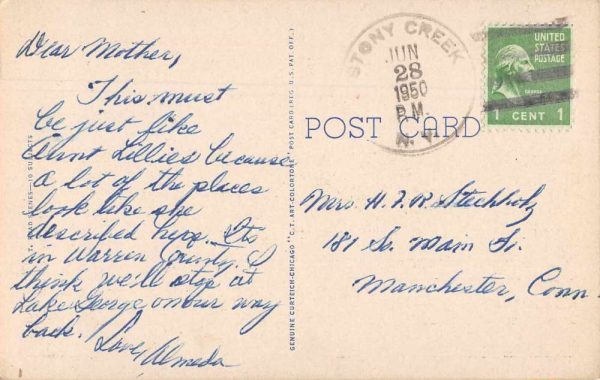 Dear Mother,
This must
be just like
Aunt Lillies because
a lot of the places
look like she
described hers. Its
in Warren County. I
think we'll stop at
Lake George on our way
back. Love, Almeda
GENUINE CURTEICH-CHICAGO "C.T. ART-COLORTONE" POST CARD (REG. U.S. PAT. OFF.)
STONY CREEK
JUN
28
1950
P.M.
N. Y.
UNITED
STATES
POSTAGE
1 CENT 1
POST CARD
Mrs. H. F. R. Stechholz
181 So. Main St.
Manchester, Conn.